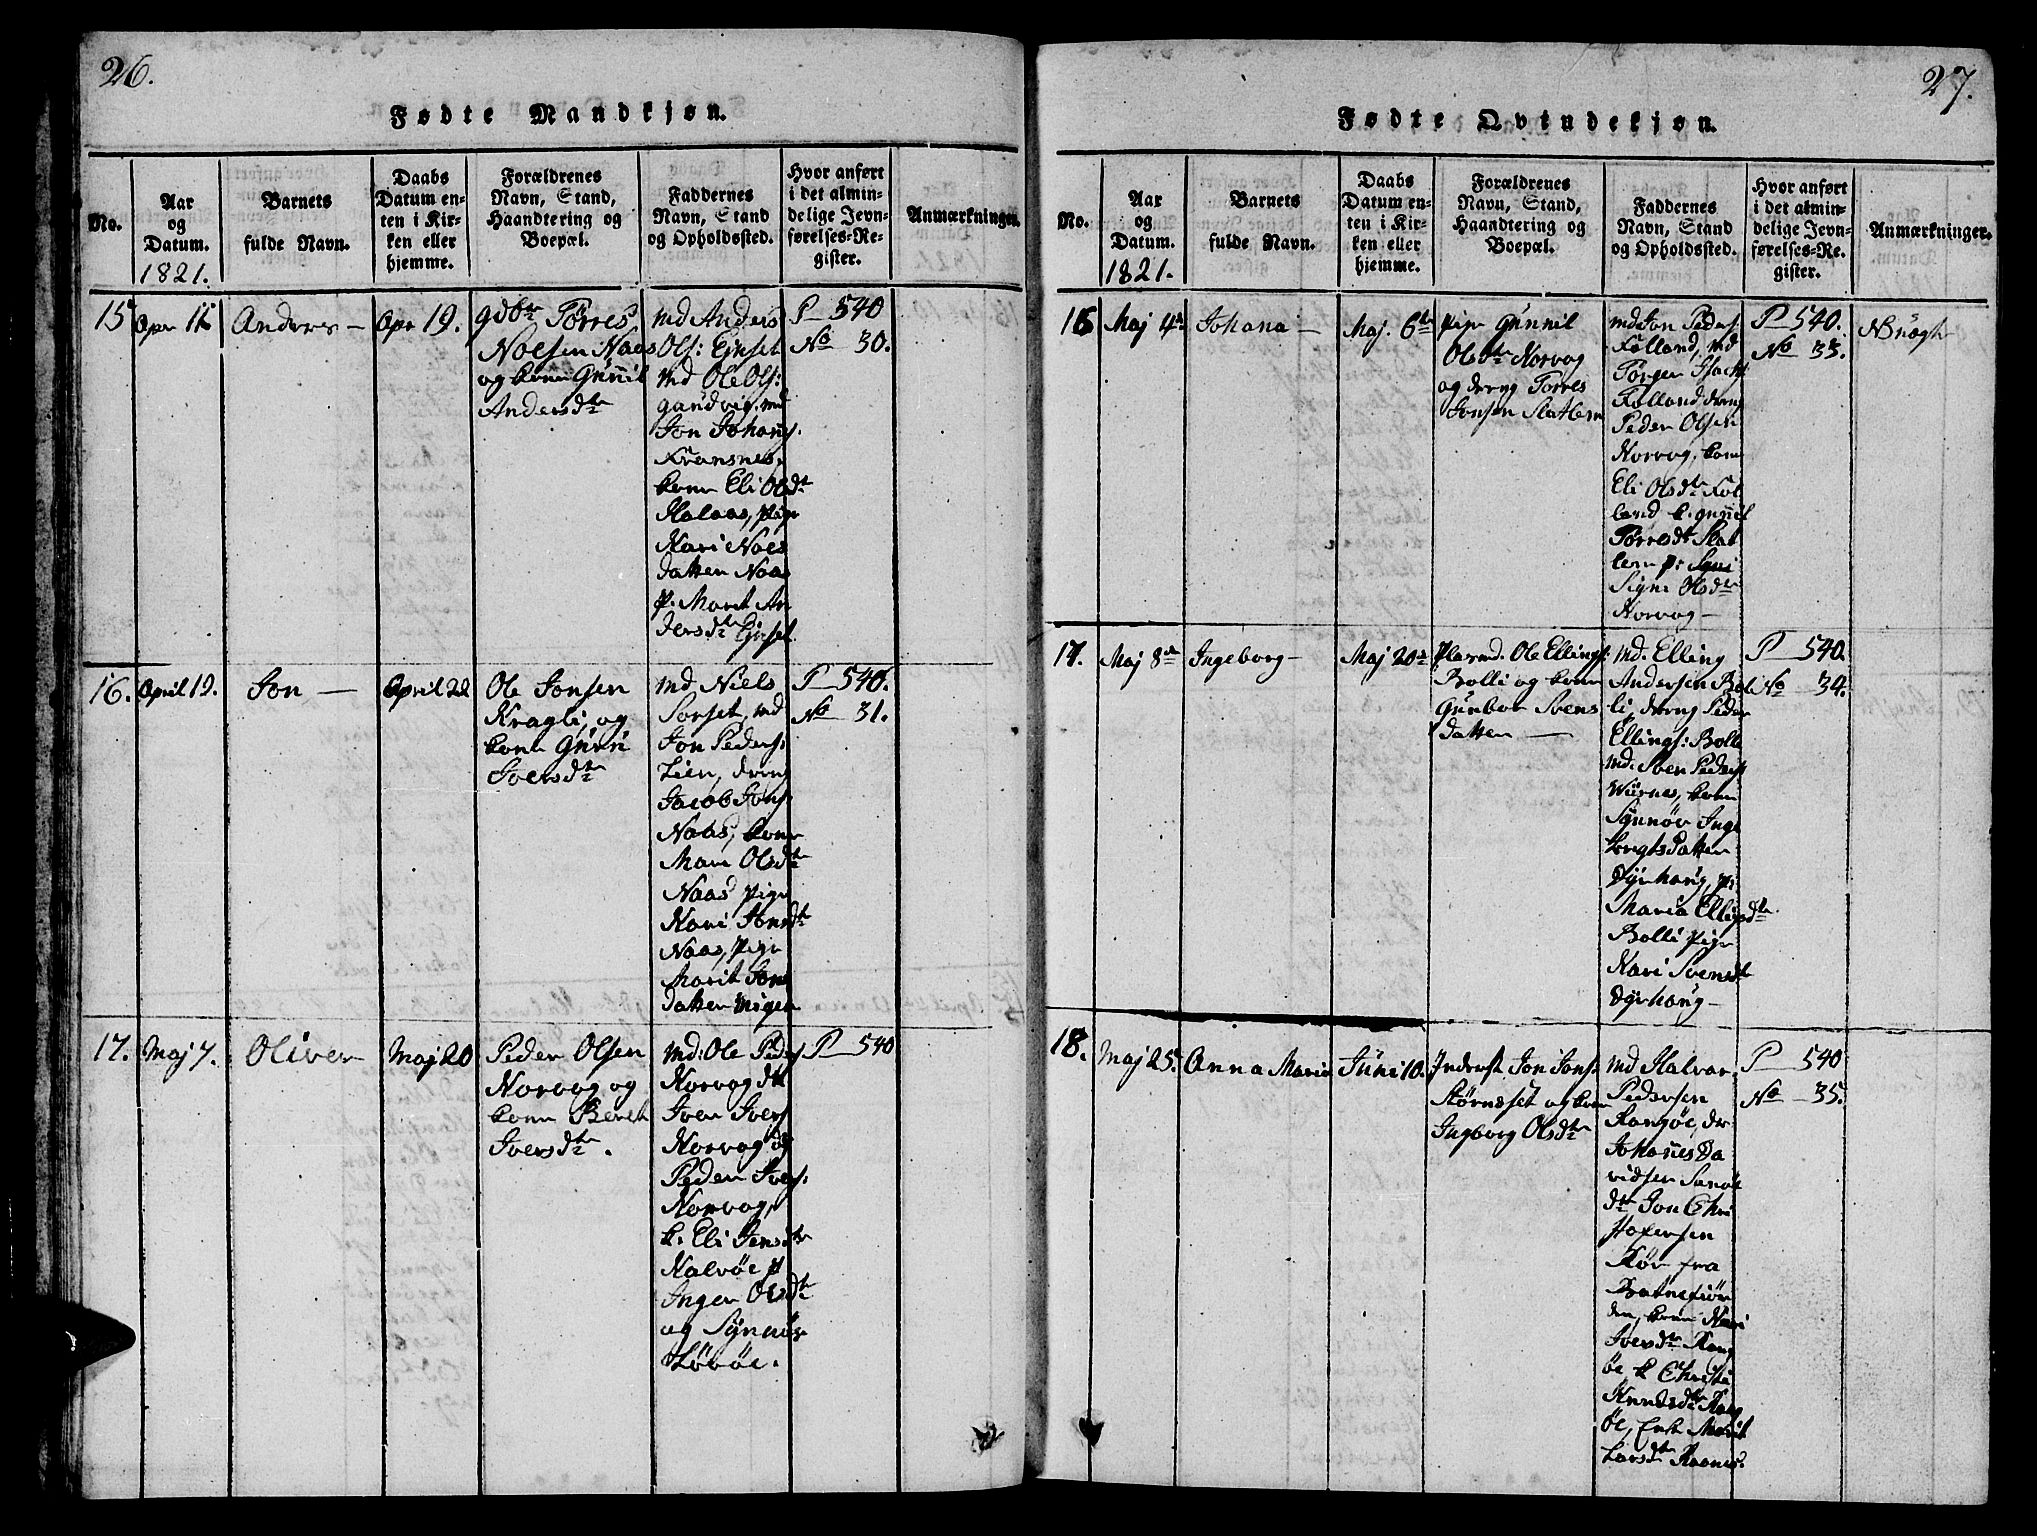 26.
Fødte Mandkjøn.
No.
Aar
og
Datum.
1821.
Barnets
fulde Navn.
Daabs
Datum en-
ten i Kir-
ken eller
hjemme.
Forældrenes
Navn, Stand,
Haandtering og
Boepæl.
Faddernes
Navn, Stand
og Opholdssted.
Hvor anført
i det almin-
delige Jevn-
førelses-Re-
gister.
Anmærkninger.
15
Apr 11
Anders —
Apr 19.
gdbr Törres
Noesen Naas
og kone Gunnil
Andersdtr
md Anders
Ols: Ejnset
md Ole Ols:
gandvig, md
Jon Johans.
Fransnes,
kone Eli Olsdtr
Halaas, pige
Kari Noes
datter Naas
p. Marit An
dersdtr Ejnset
P 540
No 30.
16.
April 19.
Jon —
April 22
Ole Jonsen
Kragli, og
kone Guri
Iversdtr
md Niels
Sorset, md
Jon Peders.
Lien, dreng
Jacob Jons.
Naas, kone
Mari Olsdtr
Naas pige
Kari Jonsdtr
Naas, pige
Marit Jons
datter
P 540.
No 31.
17.
Maj 7.
Oliver
Maj 20
Peder Olsen
Norvog og
kone Beret
Iversdtr.
md: Ole Peders
Norvog
Iver Ivers
Norvog
Peder Ivers.
Norvog,
k. Eli Jensdtr
Kalvöe p
Inger Olsdtr
og Synnöv
Löböe.
P 540
27.
Fødte Qvindekjøn.
No.
Aar
og
Datum.
1821.
Barnets
fulde Navn.
Daabs
Datum en-
ten i Kir-
ken eller
hjemme.
Forældrenes
Navn, Stand,
Haandtering og
Boepæl.
Faddernes
Navn, Stand
og Opholdssted.
Hvor anført
i det almin-
delige Jevn-
førelses-Re-
gister.
Anmærkninger.
16
Maj 4de
Johana —
Maj. 6te
pige Gunnil
Olsdtr Norvog
og dreng Torres
Jonsen Slatlem
md Jon Peders.
Folland, md
Törger
Folland dreng
Peder Olsen
Norvog, kone
Eli Olsdtr Fol
land k. gunnil
Törresdtr Slat
lem p:
Signe Olsdtr
Norvog —
P 540.
No 33.
NB uægte
17.
Maj 8de
Ingeborg —
Maj 20de
Plasmd. Ole Ellings:
Bolli og kone
Gunbor Svens
datter —
md. Elling
Andersen Bol
li, dreng Peder
Ellings: Bolli
md. Sven Peders
Wirnes, kone
Synnöv Inge
brigtsdatter
Dyrhaug, pi
Maria Ellingsdtr.
Bolli pige
Kari Svensdtr
Dyrhaug —
P 540.
No 34.
18.
Maj 25.
Anna Maria
Juni 10.
Inderst Jon Jons:
Störneset og kone
Ingborg Olsdtr
md Halvor
Pedersen
Rangöe, dr
Johanes Da
vidsen
Jon Chri
stofersen
fra
Batnefiör
den, kone Kari
Iversdtr Rang
öe, k Christi
Knudsdtr Rang
öe, Enk Marit
Larsdtr
P 540
No 35.